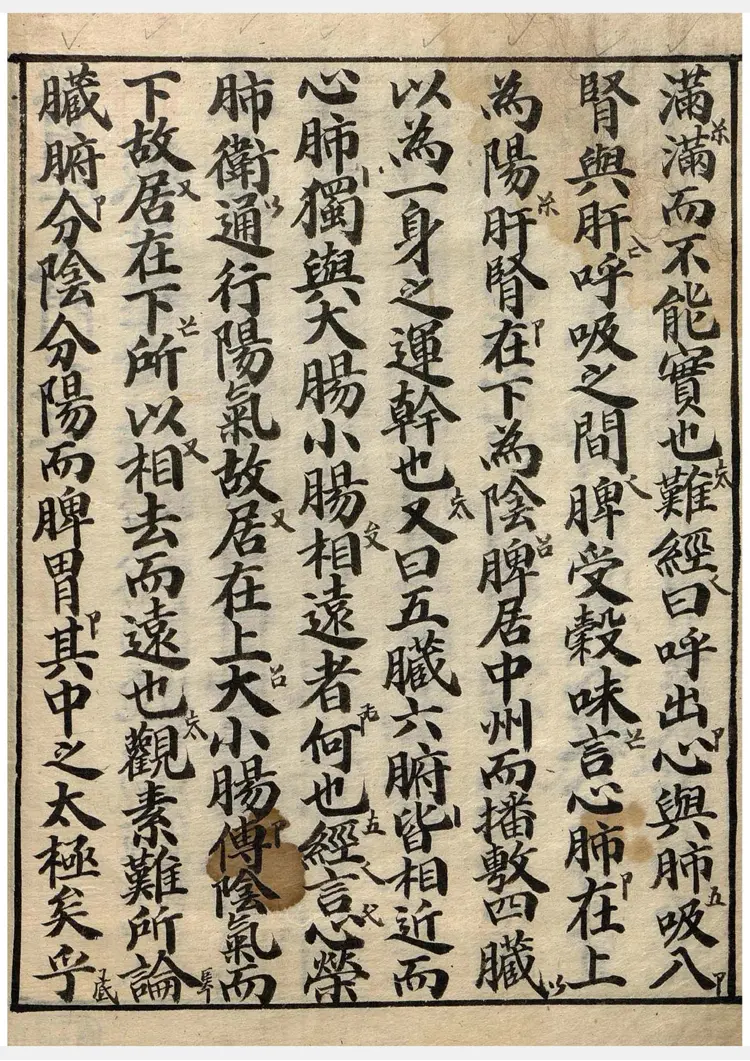 滿滿而不能實也難經曰呼出心與肺吸入
腎與肝呼吸之間脾受穀味言心肺在上
為陽肝腎在下為陰脾居中州而播敷四臟
以為一身之運幹也又曰五臟六腑皆相近而
心肺獨與大腸小腸相遠者何也經言心榮
肺衛通行陽氣故居在上大小腸傳陰氣而
下故居在下所以相去而遠也觀素難所論
臟腑分陰分陽而脾胃其中之太極矣乎